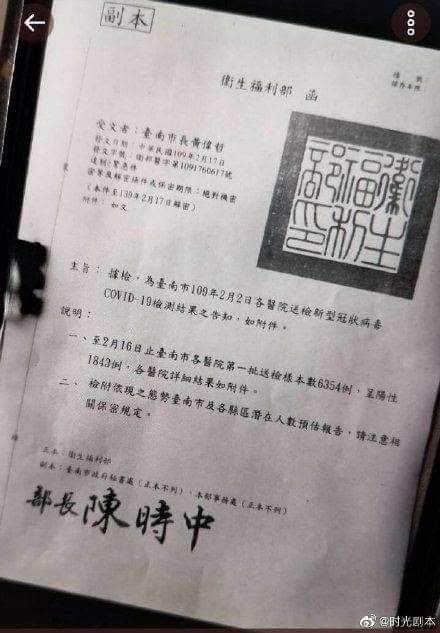 副本
檔號：
保存年限：
衛生福利部 函
受文者：臺南市長黃偉哲
發文日期：中華民國109年2月17日
發文字號：衛部醫字第1091760617號
速別：緊急件
密等及解密條件或保密期限：絕對機密
(本件至139年2月17日解密)
附件：如文
衛生
福利
部印
主旨：據檢，為臺南市109年2月2日各醫院送檢新型冠狀病毒
COVID-19檢測結果之告知，如附件。
說明：
一、至2月16日止臺南市各醫院第一批送檢樣本數6354例，呈陽性
1843例，各醫院詳細結果如附件。
二、檢附依現之態勢臺南市及各縣區潛在人數預估報告，請注意相
關保密規定。
正本：衛生福利部
副本：臺南市政府秘書處(正本不列)、本部事務處(正本不列)
部長 陳時中
@时光剧本